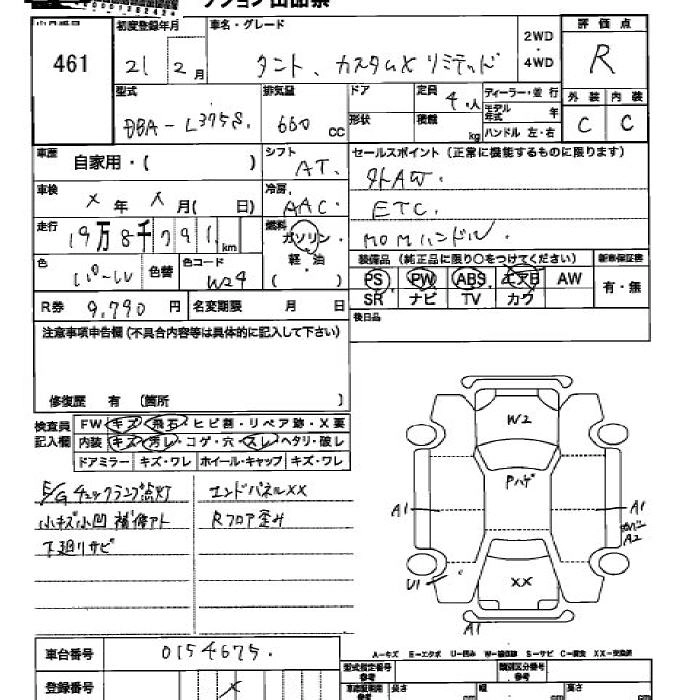 461
初度登録年月
21 2月
車名・グレード
タント、カスタムX リミテッド
2WD
・
4WD
評価点
R
外装 内装
C C
型式
DBA-L375S.
排気量
660 CC
ドア
形状
定員
4人
積載
kg
ディーラー・並行
モデル年式 年
ハンドル 左・右
車歴
自家用・( )
シフト
AT.
車検
X年 X月( 日)
冷房
AAC.
走行
19万8千791km
燃料
ガソリン・
軽・油
( )
色
パール
色替
色コード
W24
R券 9,790円
名変期限 月 日
セールスポイント(正常に機能するものに限ります)
外AW.
ETC.
MOMハンドル
装備品(純正品に限り○をつけてください)
新車保証書
PS PW ABS エアB AW
SR ナビ TV カワ
有・無
後日品
注意事項申告欄(不具合内容等は具体的に記入して下さい)
修復歴 有 (箇所 )
検査員
記入欄
FW キズ・飛石・ヒビ割・リペア跡・X要
内装 キズ・汚レ・コゲ・穴・スレ・ヘタリ・破レ
ドアミラー キズ・ワレ ホイール・キャップ キズ・ワレ
E/Gチェックランプ点灯
小キズ小凹 補修アト
下廻リサビ
エンドパネルXX
Rフロア歪み
W2
Pハゲ
A1
A1
A2
U1
XX
A1
A-キズ E-エクボ U-凹み W-補修跡 S-サビ C-腐食 XX-交換済
車台番号 0154675.
登録番号
型式指定番号
参考
類別区分番号
参考
長さ cm
幅 cm
高さ cm